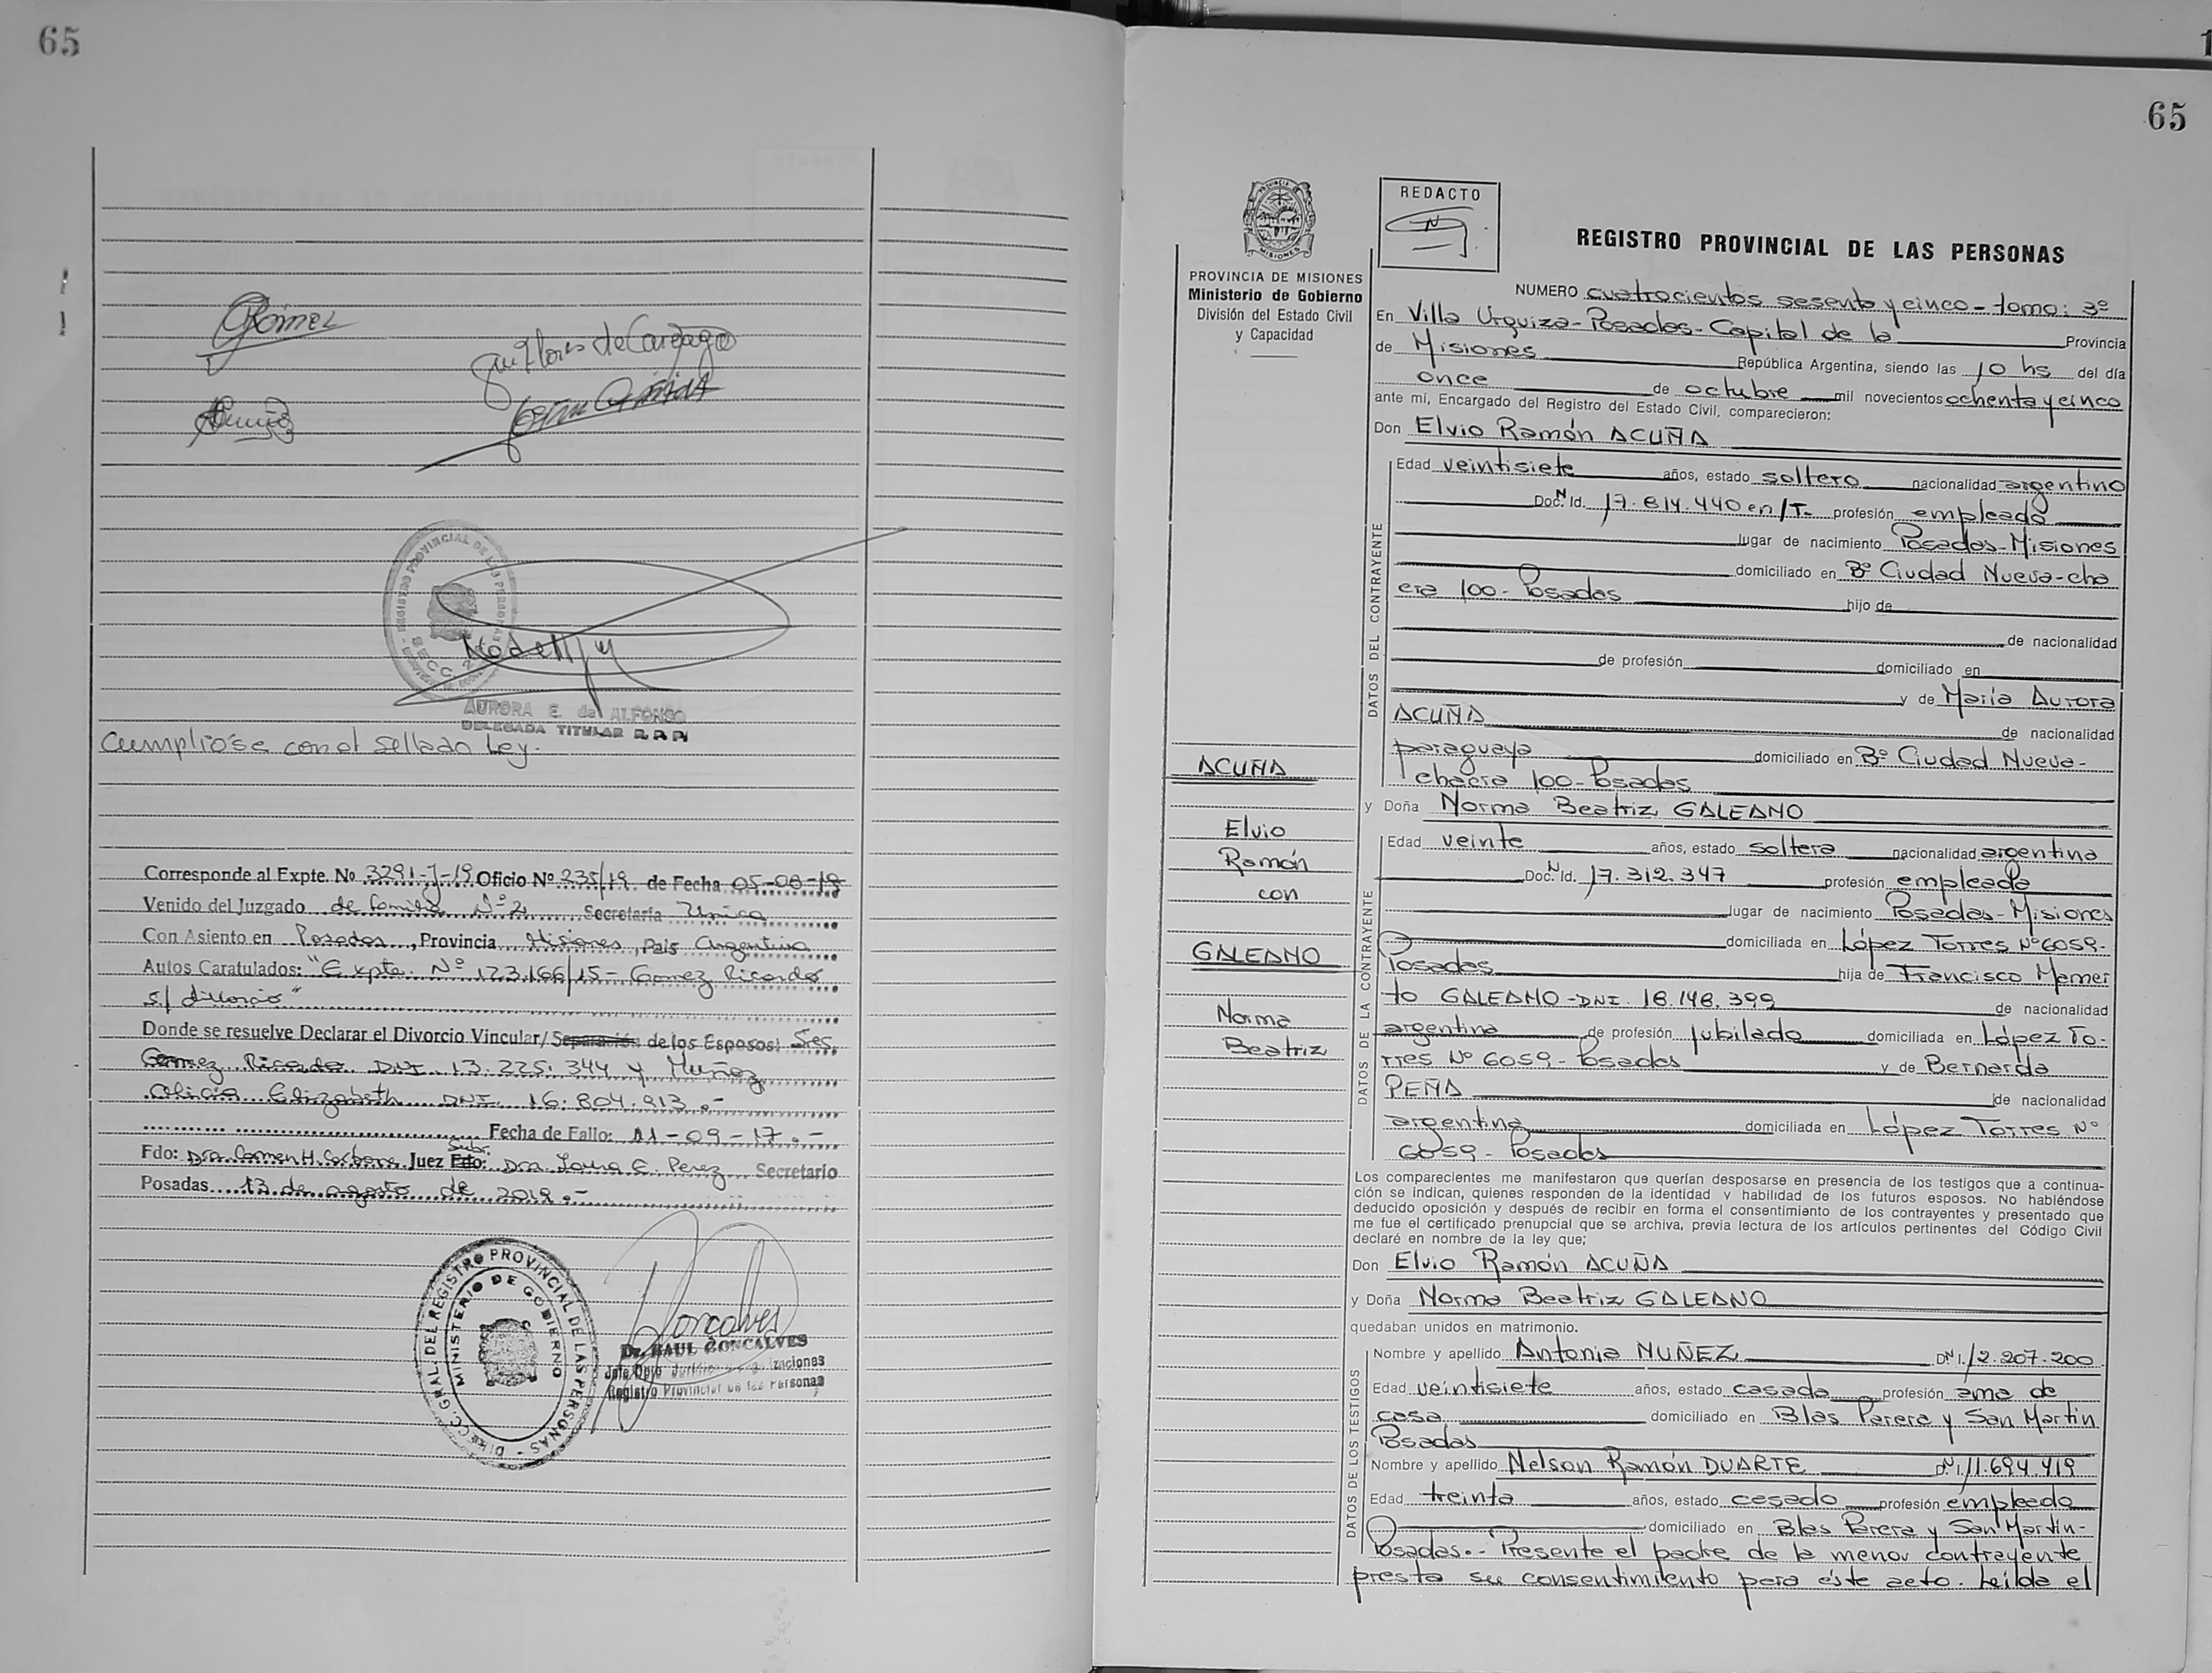 65
Gómez
Cumplióse con el sellado Ley.-
AURORA E. de ALFONSO
DELEGADA TITULAR R.P.P.
Corresponde al Expte. No 3291-J-19 Oficio Nº 235/19 de Fecha 05-08-19
Venido del Juzgado de Familia Nº 2 Secretaría Unica
Con Asiento en Posadas, Provincia Misiones, País Argentina
Autos Caratulados: "Expte. Nº 123.166/15- Gomez Ricardo
s/ divorcio"
Donde se resuelve Declarar el Divorcio Vincular/Separación de los Esposos: Sres.
Gomez Ricardo DNI 13.225.344 y Muñoz
Alicia Elizabeth DNI 16.804.913.-
Fecha de Fallo: 11-09-17.-
Fdo: Dra. Carmen H. Carbone Juez Subr. Fdo: Dra. Laura E. Perez Secretario
Posadas 13 de agosto de 2019.-
DIRECC. GRAL. DEL REGISTRO PROVINCIAL DE LAS PERSONAS
MINISTERIO DE GOBIERNO
Goncalves
Dr. RAUL GONCALVES
Registro Provincial de las Personas
65
PROVINCIA DE MISIONES
Ministerio de Gobierno
División del Estado Civil
y Capacidad
REDACTO
REGISTRO PROVINCIAL DE LAS PERSONAS
NUMERO cuatrocientos sesenta y cinco - tomo: 3º
En Villa Urquiza-Posadas-Capital de la Provincia
de Misiones República Argentina, siendo las 10 hs del día
once de octubre mil novecientos ochenta y cinco
ante mí, Encargado del Registro del Estado Civil, comparecieron:
Don Elvio Ramón ACUÑA
DATOS DEL CONTRAYENTE
Edad veintisiete años, estado soltero nacionalidad argentino
Doc. N Id. 17.614.440 en/T- profesión empleado
lugar de nacimiento Posadas-Misiones
domiciliado en Bº Ciudad Nueva-cha
cra 100-Posadas hijo de
de nacionalidad
de profesión domiciliado en
y de María Aurora
ACUÑA de nacionalidad
paraguaya domiciliado en Bº Ciudad Nueva-
chacra 100-Posadas
y Doña Norma Beatriz GALEANO
DATOS DE LA CONTRAYENTE
Edad veinte años, estado soltera nacionalidad argentina
Doc. N Id. 17.312.347 profesión empleada
lugar de nacimiento Posadas-Misiones
domiciliada en López Torres Nº6059-
Posadas hija de Francisco Memer
to GALEANO-DNI. 18.148.399 de nacionalidad
argentina de profesión jubilado domiciliada en López To-
rres Nº 6059-Posadas y de Bernarda
PEÑA de nacionalidad
argentina domiciliada en López Torres Nº
6059-Posadas
Los comparecientes me manifestaron que querían desposarse en presencia de los testigos que a continua-
ción se indican, quienes responden de la identidad y habilidad de los futuros esposos. No habiéndose
deducido oposición y después de recibir en forma el consentimiento de los contrayentes y presentado que
me fue el certificado prenupcial que se archiva, previa lectura de los artículos pertinentes del Código Civil
declaré en nombre de la ley que;
Don Elvio Ramón ACUÑA
y Doña Norma Beatriz GALEANO
quedaban unidos en matrimonio.
DATOS DE LOS TESTIGOS
Nombre y apellido Antonia NUÑEZ D.N.I. 12.207.200
Edad veintisiete años, estado casada profesión ama de
casa domiciliado en Blas Parera y San Martin
Posadas
Nombre y apellido Nelson Ramón DUARTE D.N.I. 11.694.419
Edad treinta años, estado casado profesión empleado
domiciliado en Blas Parera y San Martin-
Posadas.- Presente el padre de la menor contrayente
presta su consentimiento para éste acto. Leída el
ACUÑA
Elvio
Ramón
con
GALEANO
Norma
Beatriz